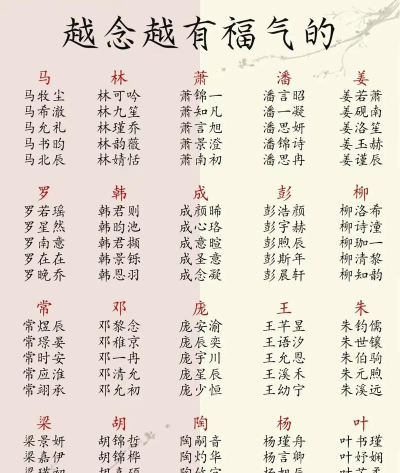 越念越有福气的
马 林 萧 潘 姜
马牧尘 林可吟 萧锦一 潘言昭 姜若萧
马希澈 林九笙 萧知凡 潘一凝 姜砚南
马允礼 林瑾乔 萧言旭 潘思妍 姜洛笙
马书昀 林韵薇 萧景澄 潘锦诗 姜玉赫
马北辰 林婧恬 萧南初 潘思冉 姜谨辰
罗 韩 成 彭 柳
罗若瑶 韩君则 成颜晞 彭浩颜 柳洛希
罗星然 韩昀池 成心珞 彭宇赫 柳诗潼
罗南意 韩君撷 成意暄 彭煦辰 柳珈一
罗在在 韩景铄 成圣意 彭斯年 柳清黎
罗晚乔 韩恩羽 成念凝 彭晨轩 柳知韵
常 邓 庞 王 朱
常煜辰 邓黎念 庞安渝 王芊昱 朱钧儒
常璟晏 邓稚京 庞辰奕 王语汐 朱世镶
常时安 邓一冉 庞宇川 王允恩 朱伯驹
常应淮 邓清允 庞星辰 王溪禾 朱元煦
常翊承 邓允初 庞少恒 王幼宁 朱溪远
梁 胡 陶 杨 叶
梁景妍 胡锦哲 陶嗣音 杨瑾舟 叶书瑾
梁嘉伊 胡锦桦 陶灼华 杨言卿 叶妤娴